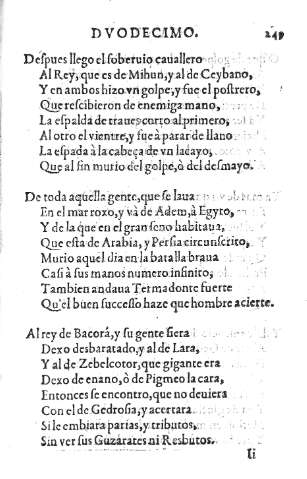 DVODECIMO. 249
Despues llego el soberuio cauallero
Al Rey, que es de Mihun, y al de Ceybano,
Y en ambos hizo vn golpe, y fue el postrero,
Que rescibieron de enemiga mano,
La espalda de traues corto al primero,
Al otro el vientre, y fue à parar de llano
La espada à la cabeça de vn laćayo,
Que al fin murio del golpe, ò del desmayo.
De toda aquella gente, que se laua
En el mar roxo, y và de Adem, à Egyto,
Y de la que en el gran seno habitaua,
Que esta de Arabia, y Persia circunscrito,
Murio aquel dia en la batalla braua
Casi à sus manos numero infinito,
Tambien andaua Tetmadonte fuerte
Qu'el buen successo haze que hombre acierte.
Al rey de Bacorà, y su gente fiera
Dexo desbaratado, y al de Lara,
Y al de Zebelcotor, que gigante era
Dexo de enano, ò de Pigmeo la cara,
Entonces se encontro, que no deuiera
Con el de Gedrosia, y acertara
Si le embiara parias, y tributos,
Sin ver sus Guzarates ni Resbutos.
Ii